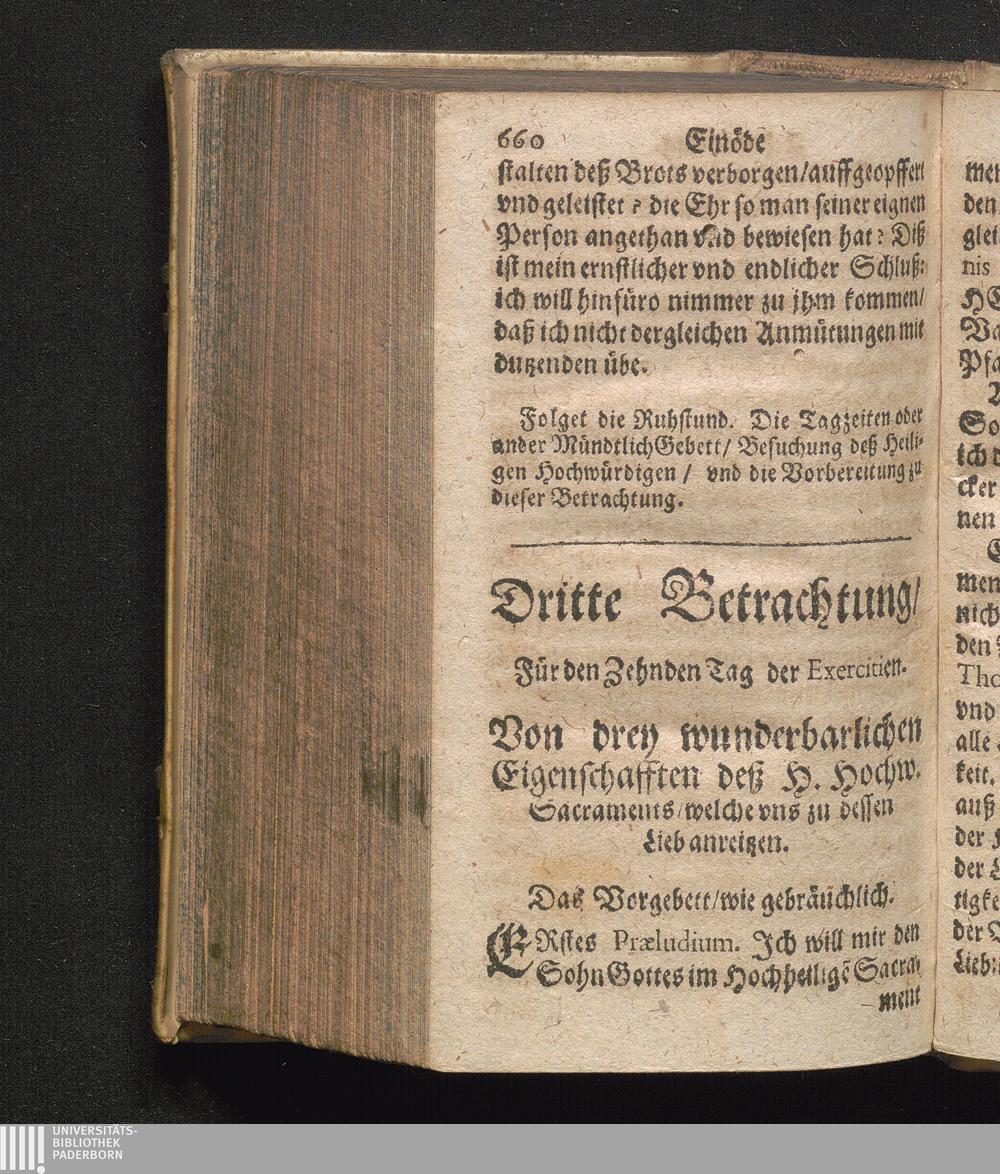 660 Einöde
stalten deß Brots verborgen/auffgeopffert
vnd geleistet? die Ehr so man seiner eignen
Person angethan vnd bewiesen hat? Diß
ist mein ernstlicher vnd endlicher Schluß:
ich will hinfüro nimmer zu jhm kommen/
daß ich nicht dergleichen Anmütungen mit
dutzenden übe.
Folget die Ruhstund. Die Tagzeiten oder
ander MündtlichGebett/ Besuchung deß Heili-
gen Hochwürdigen / vnd die Vorbereitung zu
dieser Betrachtung.
Dritte Betrachtung/
Für den Zehnden Tag der Exercitien.
Von drey wunderbarlichen
Eigenschafften deß H. Hochw.
Sacraments/welche vns zu dessen
Lieb anreitzen.
Das Vorgebett/wie gebräuchlich.
ERstes Præludium. Jch will mir den
Sohn Gottes im Hochheiligē Sacra-
ment
den
nis
ich
nen
nich
den
vnd
alle
keit.
auß
der
der
der
Lieb:
UNIVERSITÄTS-
BIBLIOTHEK
PADERBORN